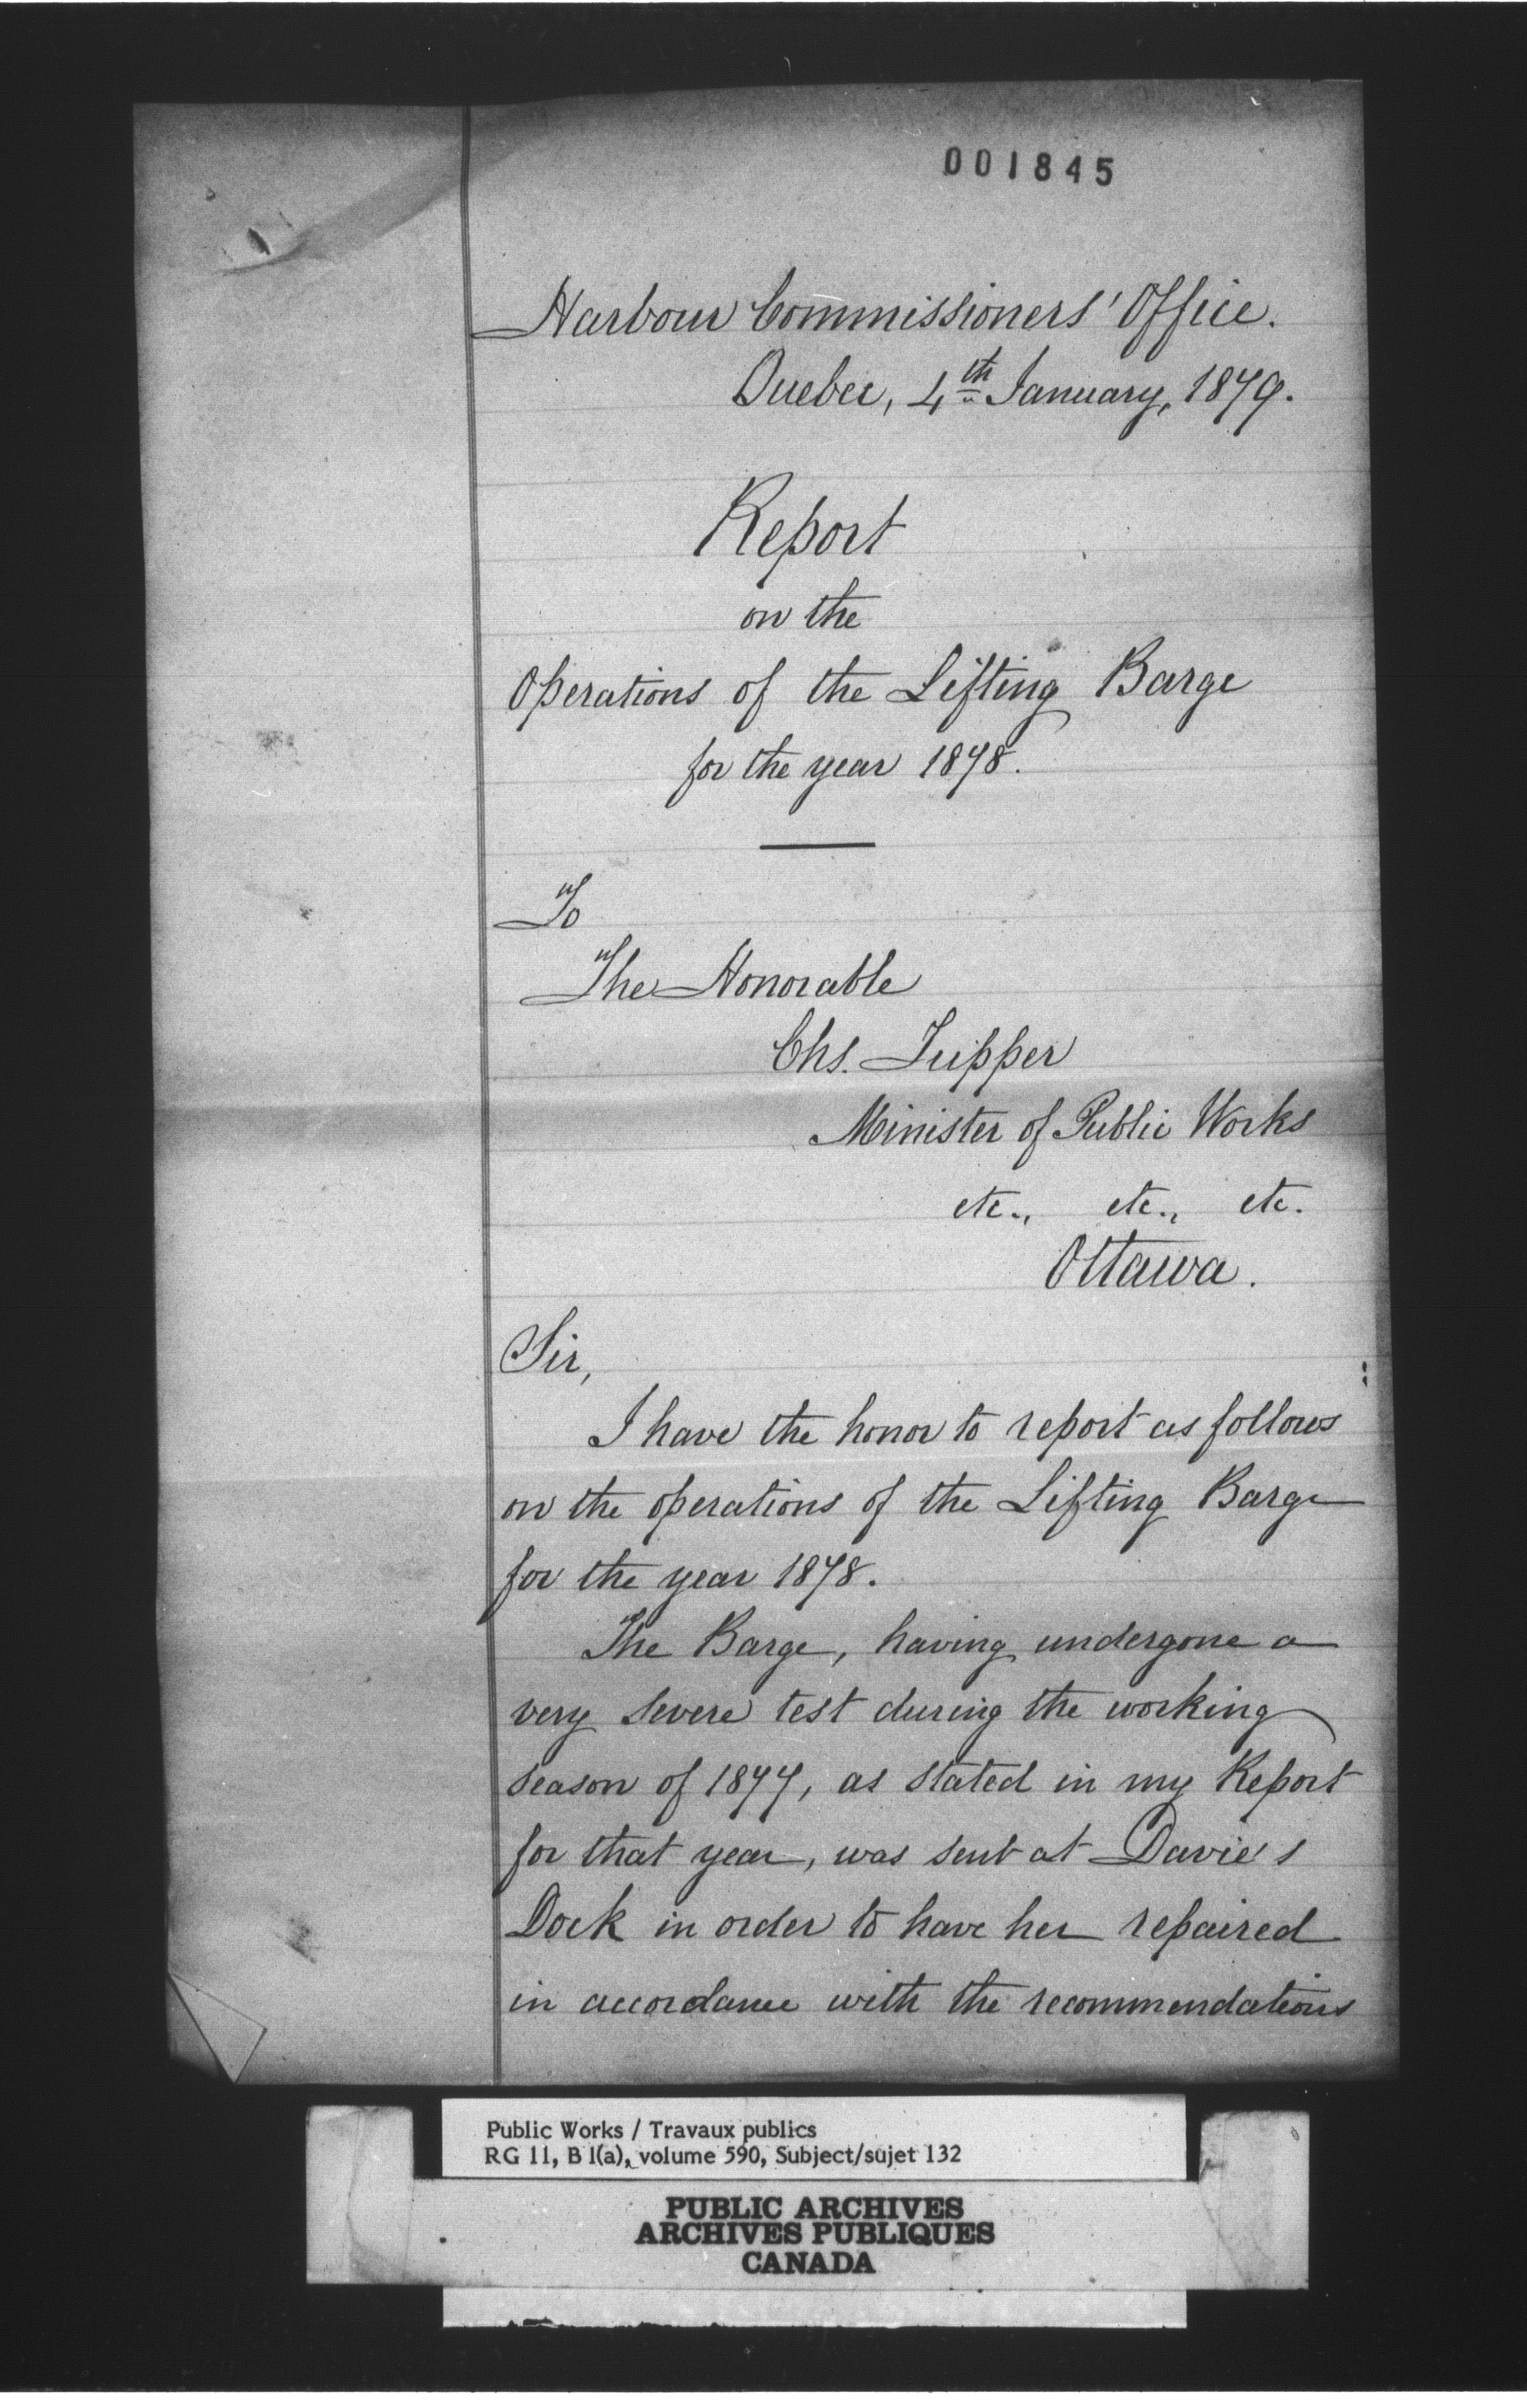 001845
Harbour Commissioners' Office.
Quebec, 4th January, 1879.
Report
on the
Operations of the Lifting Barge
for the year 1878.
To
The Honorable
Chs. Tupper
Minister of Public Works
etc., etc., etc.
Ottawa.
Sir,
I have the honor to report as follows
on the operations of the Lifting Barge
for the year 1878.
The Barge, having undergone a
very severe test during the working
season of 1877, as stated in my Report
for that year, was sent at Davie's
Dock in order to have her repaired
in accordance with the recommendations
Public Works / Travaux publics
RG 11, B 1(a), volume 590, Subject/sujet 132
PUBLIC ARCHIVES
ARCHIVES PUBLIQUES
CANADA